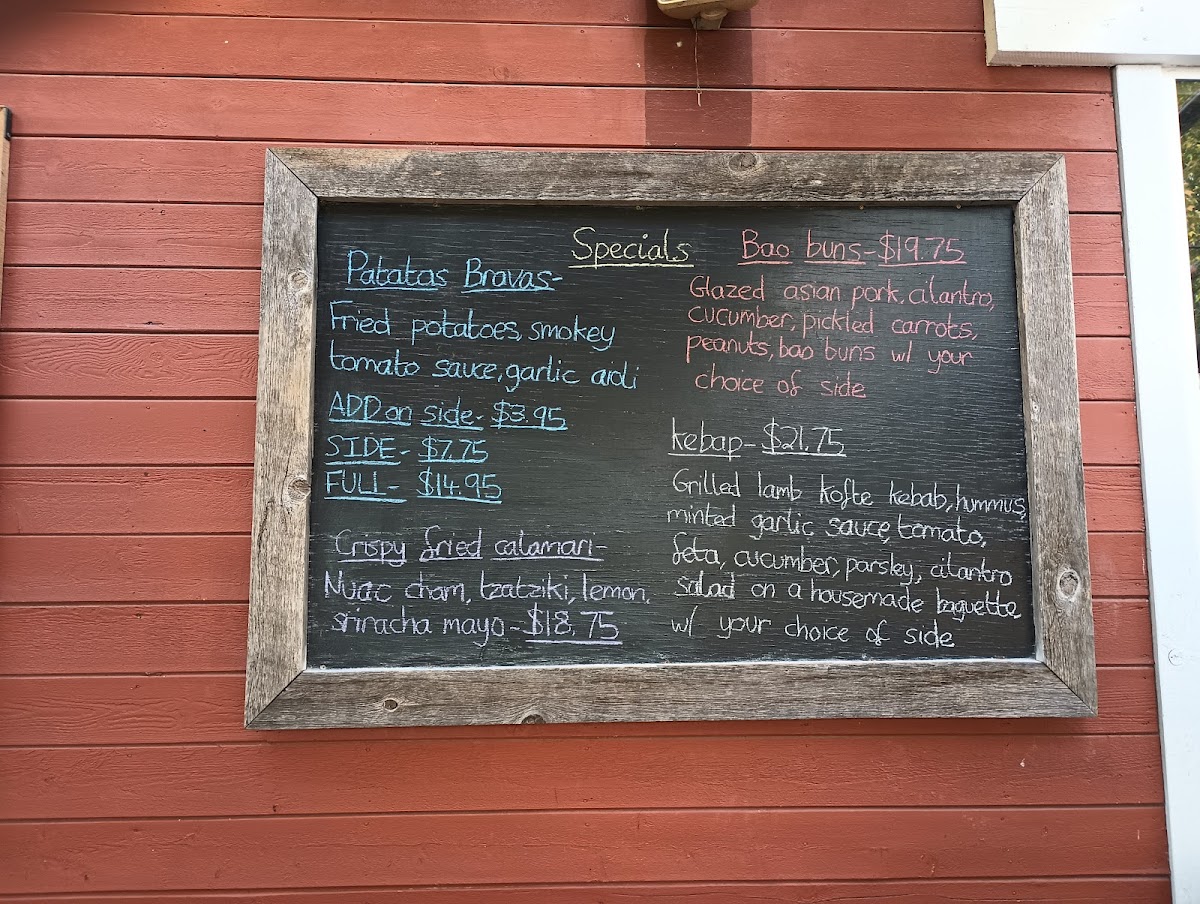 Specials
Patatas Bravas-
Fried potatoes, smokey
tomato sauce, garlic aioli
ADD on side- $3.95
SIDE- $7.75
FULL- $14.95
Crispy fried calamari-
Nuac cham, tzatziki, lemon,
sriracha mayo- $18,75
Bao buns-$19.75
Glazed asian pork, cilantro,
cucumber, pickled carrots,
peanuts, bao buns w/ your
choice of side
kebap- $21.75
Grilled lamb kofte kebab, hummus,
minted garlic sauce, tomato,
feta, cucumber, parsley, cilantro
salad on a housemade baguette
w/ your choice of side